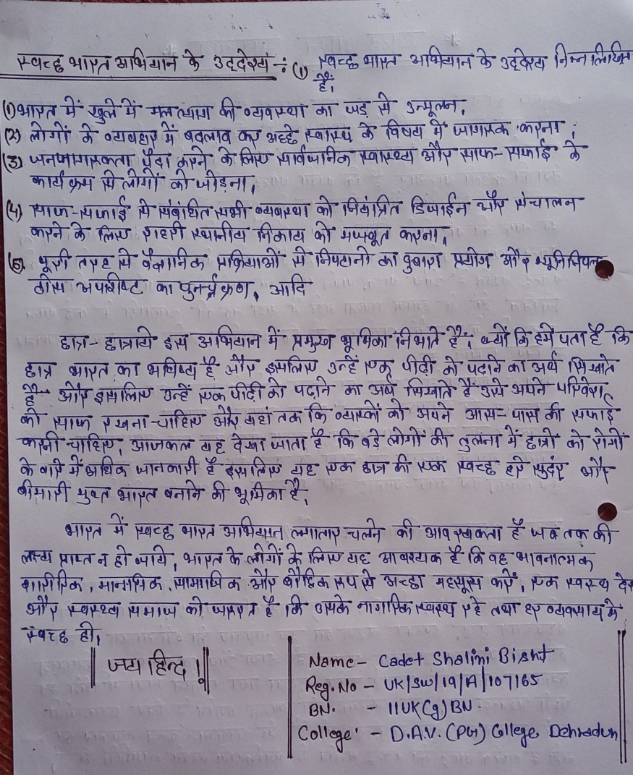 स्वच्छ भारत अभियान के उद्देश्य :- (1) स्वच्छ भारत अभियान के उद्देश्य निम्न लिखित
है।
(1) भारत में खुले में मलत्याग की व्यवस्था का जड़ से उन्मूलन,
(2) लोगों के व्यवहार में बदलाव कर अच्छे स्वास्थ्य के विषय में जागरूक करना,
(3) जनजागरूकता पैदा करने के लिए सार्वजनिक स्वास्थ्य और साफ-सफाई के
कार्यक्रम से लोगों को जोड़ना,
(4) साफ-सफाई से संबंधित सभी व्यवस्था को नियंत्रित डिजाईन और संचालन
करने के लिए शहरी स्थानीय निकाय को मजबूत करना,
(5) पूरी तरह से वैज्ञानिक प्रक्रियाओं से निपटानों का दुबारा प्रयोग और म्यूनिसिपल
ठोस अपशिष्ट का पुनर्चक्रण, आदि
छात्र-छात्रायें इस अभियान में प्रमुख भूमिका निभाते है। क्यों कि हमें पता है कि
छात्र भारत का भविष्य है और इसलिए उन्हें एक पीढी को पढाने का अर्थ सिखाते
है और इसलिए उन्हें एक पीढी को पढाने का अर्थ सिखाते है उसे अपने परिवेश
को साफ रखना-चाहिए और यहां तक कि व्यस्कों को अपने आस-पास की सफाई
करनी चाहिए, आजकल यह देखा जाता है कि बडे लोगों की तुलना में छात्रों को रोगों
के बारे में अधिक जानकारी है इसलिए यह एक छात्र की एक स्वच्छ हरे सुदंर और
बीमारी मुक्त भारत बनाने की भूमिका है,
भारत में स्वच्छ भारत अभियान लगातार चलने की आवश्यकता है जब तक की
लक्ष्य प्राप्त न हो जाये, भारत के लोगों के लिए यह आवश्यक है कि वह भावनात्मक
शारीरिक, मानसिक, सामाजिक और बौद्धिक रूप से अच्छा महसूस करें, एक स्वस्थ देश
और स्वस्थ समाज को जरूरत है कि उसके नागरिक स्वस्थ रहे तथा हर व्यवसाय में
स्वच्छ हो,
जय हिन्द !
Name- Cadet Shalini Bisht
Reg.No - UK/SW/19/A/107165
BN. - 11UK(G)BN.
College - D.A.V. (PG) College Dehradun